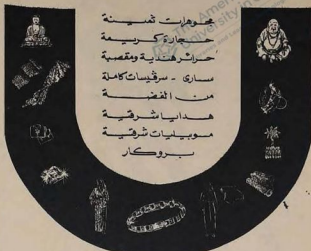 مجوهرات ثمينة
حجارة كريمة
حرائر هندية ومقصبة
ساري - سرڤيسات كاملة
من الفضة
هدايا شرقية
موبيليات شرقية
بروكار
The Ame
University in